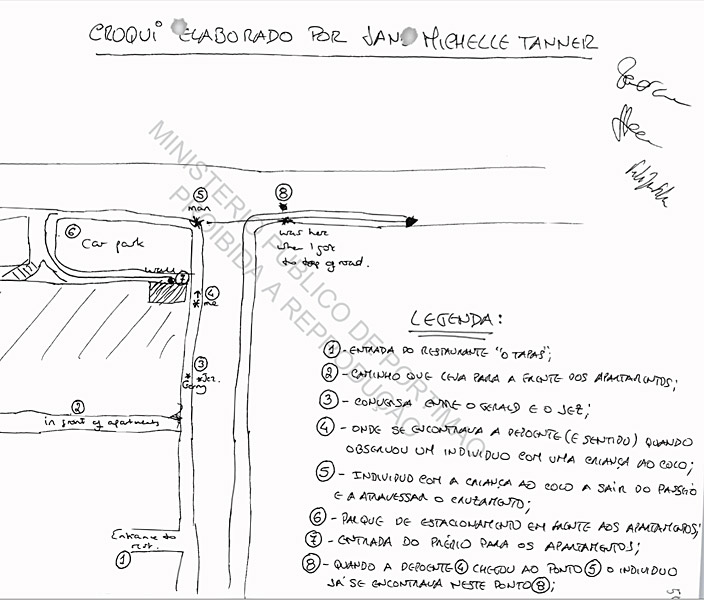 CROQUI ELABORADO POR JANE MICHELLE TANNER
MINISTERIO PÚBLICO DE PORTIMÃO
PROIBIDA A REPRODUÇÃO
5
man
8
was here
when I got
to top of road.
6
Car park
wall
7
4
me
3
Gerry Jez.
2
in front of apartments
Entrance to
rest.
1
LEGENDA:
1 - ENTRADA DO RESTAURANTE "O TAPAS";
2 - CAMINHO QUE LEVA PARA A FRENTE DOS APARTAMENTOS;
3 - CONVERSA ENTRE O GERALD E O JEZ;
4 - ONDE SE ENCONTRAVA A DEPOENTE (E SENTIDO) QUANDO
OBSERVOU UM INDIVIDUO COM UMA CRIANÇA AO COLO;
5 - INDIVIDUO COM A CRIANÇA AO COLO A SAIR DO PASSEIO
E A ATRAVESSAR O CRUZAMENTO;
6 - PARQUE DE ESTACIONAMENTO EM FRENTE AOS APARTAMENTOS;
7 - ENTRADA DO PRÉDIO PARA OS APARTAMENTOS;
8 - QUANDO A DEPOENTE 4 CHEGOU AO PONTO 5 O INDIVIDUO
JÁ SE ENCONTRAVA NESTE PONTO 8;